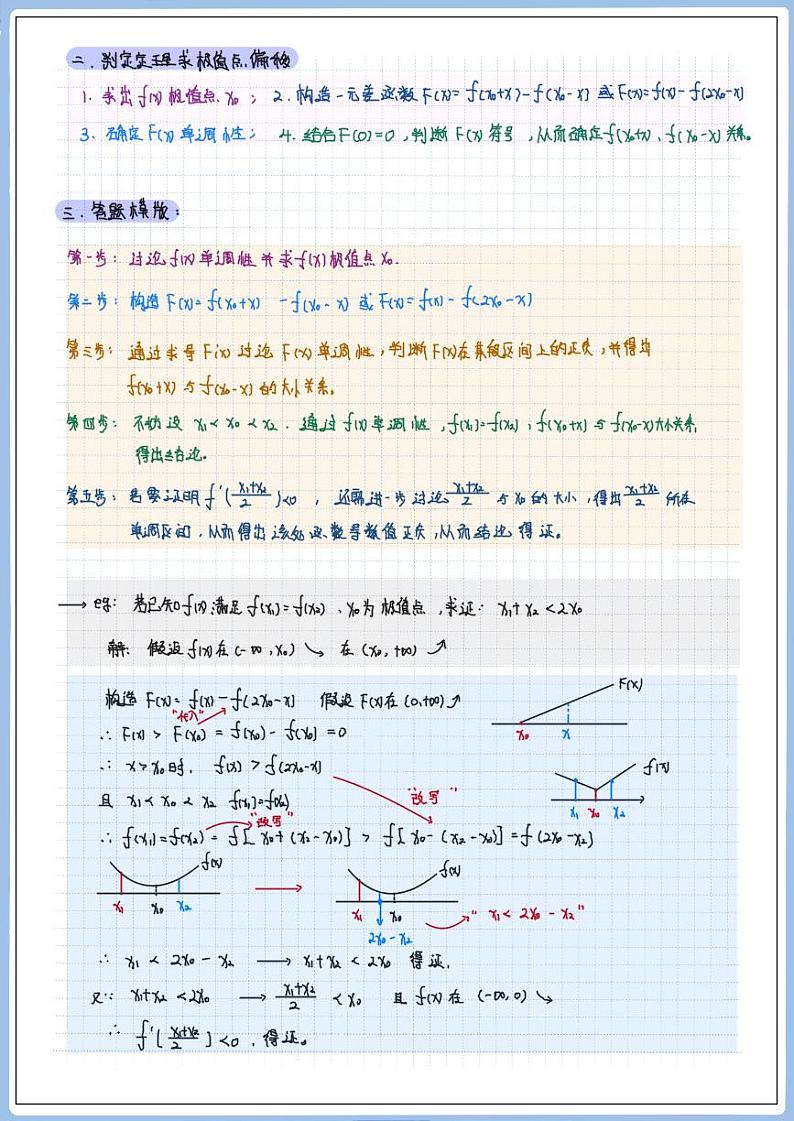 二.判定定理求极值点偏移
1. 求出f(x)极值点x₀ ; 2. 构造一元差函数F(x)=f(x₀+x)-f(x₀-x] 或F(x)=f(x)-f(2x₀-x]
3、确定F(x)单调性; 4. 结合F(0)=0,判断F(x)符号,从而确定f(x₀+x)、f(x₀-x)关系。
三.答题模版:
第一步: 讨论f(x)单调性并求f(x)极值点x₀.
第二步: 构造F(x)=f(x₀+x) -f(x₀-x) 或F(x)=f(x)-f(2x₀-x]
第三步: 通过求导F(x)讨论F(x)单调性,判断F(x)在某段区间上的正负,并得出
f(x₀+x)与f(x₀-x)的大小关系。
第四步: 不妨设 x₁<x₀<x₂. 通过f(x)单调性,f(x₁)=f(x₂),f(x₀+x)与f(x₀-x)大小关系,
得出结论。
第五步: 若要证明f'(x₁+x₂/2)<0 , 还需进一步讨论x₁+x₂/2与x₀的大小,得出x₁+x₂/2所在
单调区间,从而得出该处函数导数值正负,从而结论得证。
→ eg: 若已知f(x)满足f(x₁)=f(x₂)、x₀为极值点,求证: x₁+x₂<2x₀
解: 假设f(x)在(-∞,x₀)↘ 在(x₀,+∞)↗
构造F(x)=f(x)-f(2x₀-x] 假设F(x)在(0,+∞)↗
F(x)
"代入"
∴ F(x)>F(x₀)=f(x₀)-f(x₀]=0
x₀ x
∴ x>x₀时, f(x)>f(2x₀-x]
f(x)
且 x₁<x₀<x₂ f(x₁)=f(x₂)
"改写"
x₁ x₀ x₂
"改写"
∴ f(x₁)=f(x₂)=f[x₀+(x₂-x₀)] > f[x₀-(x₂-x₀)]=f(2x₀-x₂)
f(x) f(x)
x₁ x₀ x₂ → x₁ x₀ "x₁<2x₀-x₂"
2x₀-x₂
∴ x₁<2x₀-x₂ → x₁+x₂<2x₀ 得证.
又∵ x₁+x₂<2x₀ → x₁+x₂/2<x₀ 且f(x)在(-∞,0)↘
∴ f'(x₁+x₂/2]<0 ,得证。